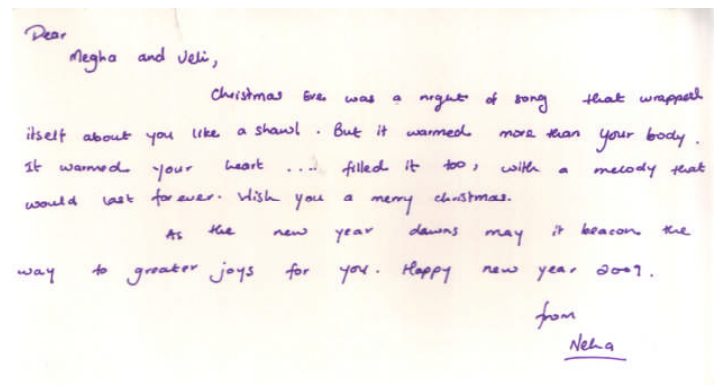 Dear
Megha and Veli,
Christmas Eve was a night of song that wrapped
itself about you like a shawl. But it warmed more than your body.
It warmed your heart .... filled it too, with a melody that
would last for ever. Wish you a merry christmas.
As the new year dawns may it beacon the
way to greater joys for you. Happy new year 2009.
from
Neha